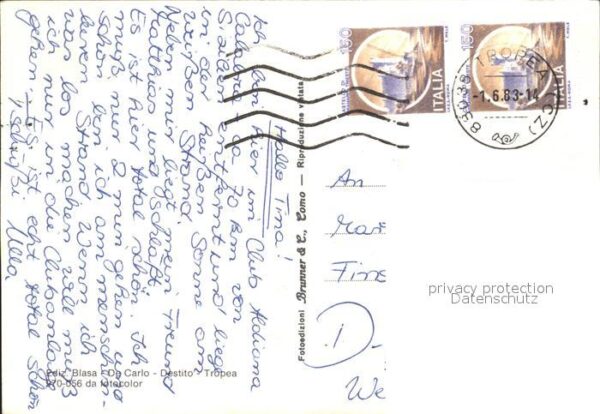 Hallo Tina!
Ich bin hier im Club Aldiana
Calabria - da 70 km von
Süden entfernt und liege
in der heißen Sonne am
weißen Strand.
Neben mir liegt mein Freund
Matthias und schläft.
Es ist hier total schön. Ich
muß nur 2 min gehen und
schon bin ich am menschen-
leeren Strand. Wenn ich
was los machen will muß
ich nur in die Clubanlage
gehen - Es ist echt total schön
Tschüßi Ulla
Ediz. Blasa - De Carlo - Destito - Tropea
270-056 da fotocolor
Fotoedizioni Brunner & C., Como — Riproduzione vietata
150
ITALIA
150
ITALIA
88038 TROPEA (CZ)
-1.6.83-14
An
D-
We
privacy protection
Datenschutz